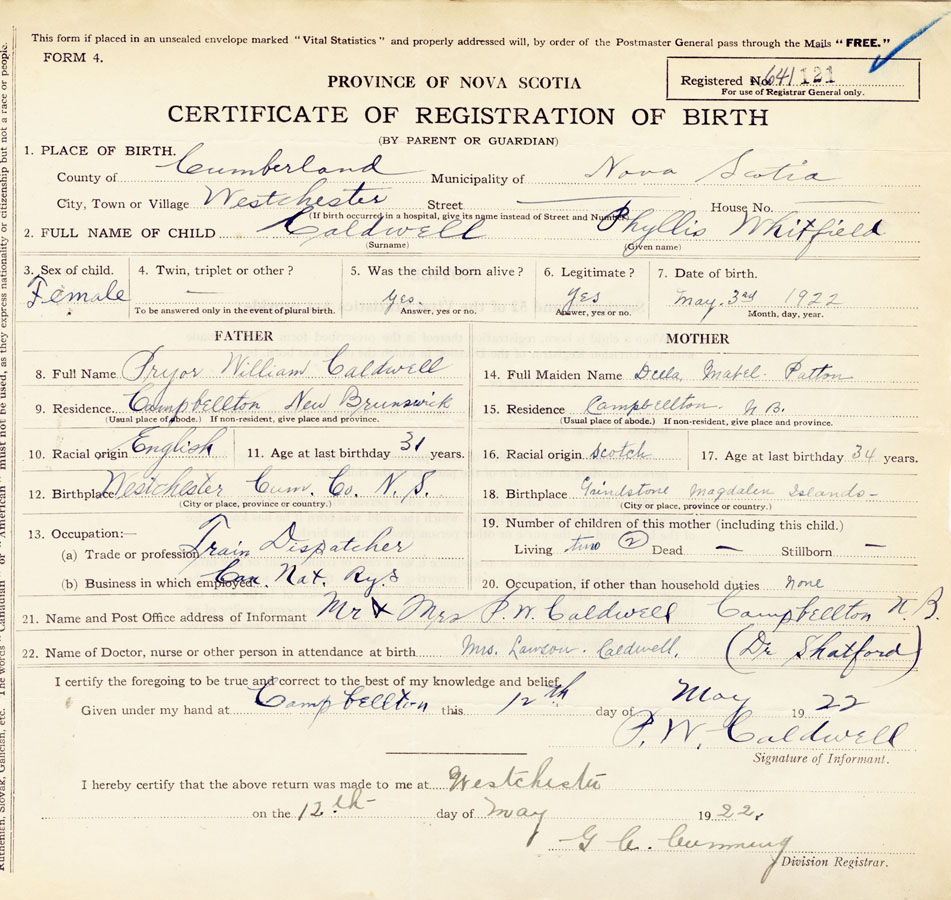 This form if placed in an unsealed envelope marked "Vital Statistics" and properly addressed will, by order of the Postmaster General pass through the Mails "FREE."
FORM 4.
Registered No. 641121
For use of Registrar General only.
PROVINCE OF NOVA SCOTIA
CERTIFICATE OF REGISTRATION OF BIRTH
(BY PARENT OR GUARDIAN)
1. PLACE OF BIRTH.
County of Cumberland Municipality of Nova Scotia
City, Town or Village Westchester Street House No.
(If birth occurred in a hospital, give its name instead of Street and Number)
2. FULL NAME OF CHILD Caldwell Phyllis Whitfield
(Surname) (Given name)
3. Sex of child. 4. Twin, triplet or other? 5. Was the child born alive? 6. Legitimate? 7. Date of birth.
Female — yes. yes May. 3rd 1922
To be answered only in the event of plural birth. Answer, yes or no. Answer, yes or no. Month, day, year.
FATHER
8. Full Name Pryor William Caldwell
9. Residence Campbellton New Brunswick
(Usual place of abode.) If non-resident, give place and province.
10. Racial origin English 11. Age at last birthday 31 years.
12. Birthplace Westchester Cum. Co. N.S.
(City or place, province or country.)
13. Occupation:—
(a) Trade or profession Train Dispatcher
(b) Business in which employed Can. Nat. Rys
MOTHER
14. Full Maiden Name Della Mabel Patton
15. Residence Campbellton. N.B.
(Usual place of abode.) If non-resident, give place and province.
16. Racial origin Scotch 17. Age at last birthday 34 years.
18. Birthplace Grindstone Magdalen Islands—
(City or place, province or country.)
19. Number of children of this mother (including this child.)
Living two (2) Dead — Stillborn —
20. Occupation, if other than household duties none
21. Name and Post Office address of Informant Mr & Mrs P.W. Caldwell Campbellton N.B.
22. Name of Doctor, nurse or other person in attendance at birth Mrs. Lawson Caldwell. (Dr Shatford)
I certify the foregoing to be true and correct to the best of my knowledge and belief.
Given under my hand at Campbellton this 12th day of May 1922
P.W. Caldwell
Signature of Informant.
I hereby certify that the above return was made to me at Westchester
on the 12th day of May 1922.
G. C. Cumming
Division Registrar.
Ruthenian, Slovak, Galician, etc. The words "Canadian" or "American" must not be used, as they express nationality or citizenship but not a race or people.